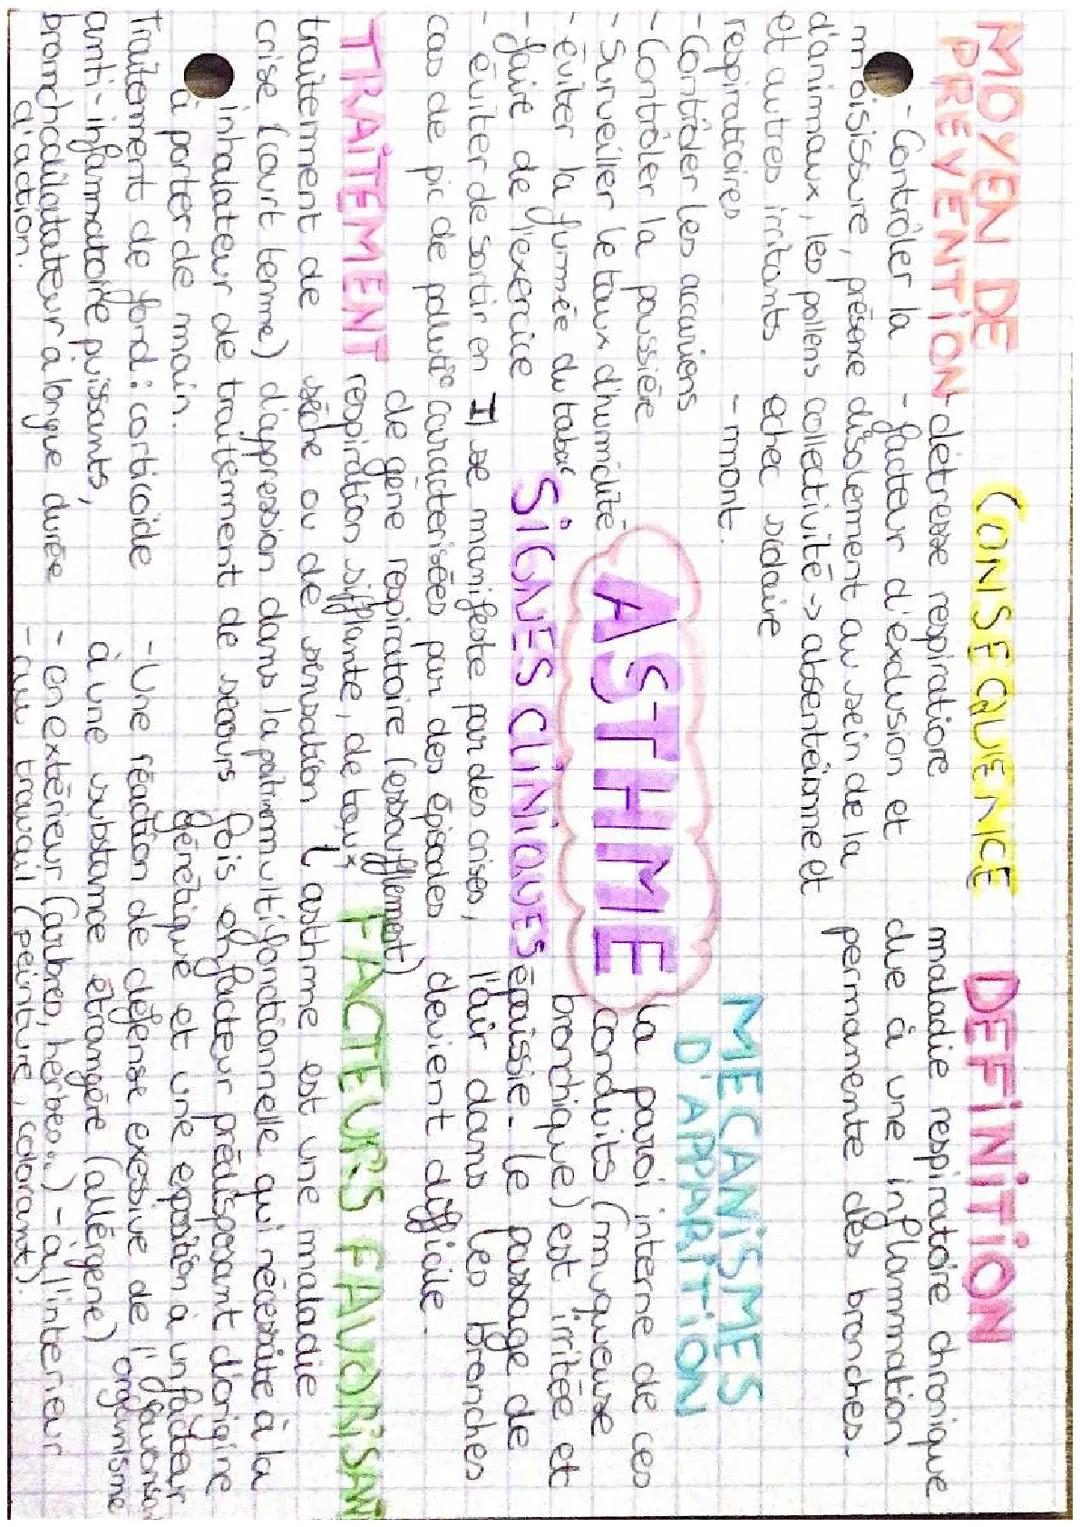 MOYEN DE
PREVENTION
- Contrôler la
moisissure, présene
d'animaux, les pollens
et autres irritants
respiratoires
- Contrôler les accariens
- Contrôler la poussière
- Surveiller le taux d'humidité
- éviter la fumée du tabac
- faire de l'exercice
- éviter de sortir en
cas de pic de pollutio
CONSEQUENCE
- détresse respiratiore
- facteur d'exclusion et
d'isolement au sein de la
collectivité -> absentéisme et
echec scolaire
- mort.
DEFINITION
maladie respiratoire chronique
due à une inflammation
permanente des bronches.
ASTHME
MECANISMES
D'APPARITION
la paroi interne de ces
conduits (muqueuse
bronchique) est irritée et
épaissie. le passage de
l'air dans les bronches
devient difficile.
SIGNES CLINIQUES
Il se manifeste par des crises,
caractérisées par des épisodes
de gène respiratoire (essoufflement)
respiration sifflante, de toux
sèche ou de sensation
d'appression dans la poitrine
TRAITEMENT
traitement de
crise (court terme)
inhalateur de traitement de secours
à porter de main.
Traitement de fond : corticoïde
anti-inflammatoire puissants,
bronchodilatateur à longue durée
d'action.
FACTEURS FAVORISANT
l'asthme est une maladie
multifonctionnelle qui nécessite à la
fois en facteur prédisposant d'origine
génétique et une exposition à un facteur
favorisa
- Une réaction de défense exessive de l'organisme
à une substance étrangère (allérgène)
- en extérieur (arbres, herbes...) - à l'intérieur
- au travail (peinture, colorant).